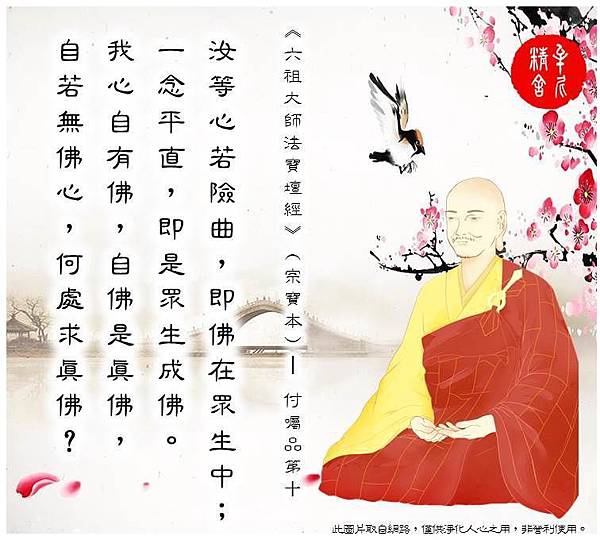 精舍
《六祖大師法寶壇經》（宗寶本）— 付囑品第十
汝等心若險曲，即佛在眾生中；
一念平直，即是眾生成佛。
我心自有佛，自佛是眞佛，
自若無佛心，何處求眞佛？
此圖片取自網路，僅供淨化人心之用，非營利使用。